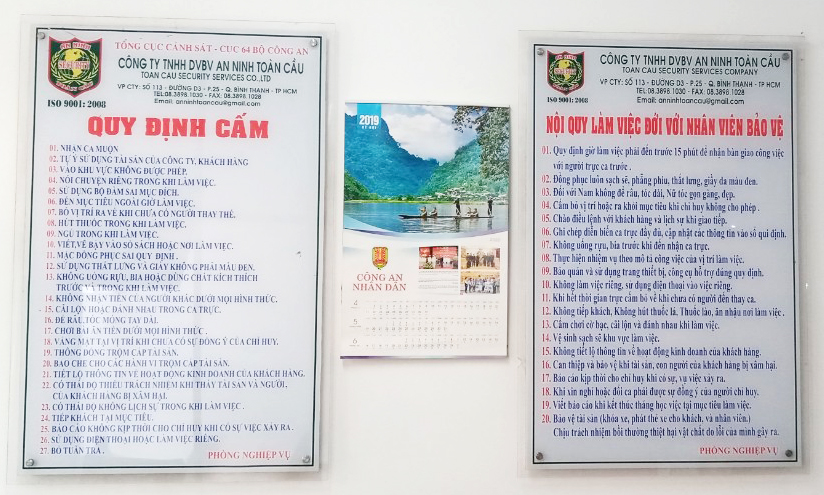 AN NINH
SECURITY
TOÀN CẦU
ISO 9001: 2008
TỔNG CỤC CẢNH SÁT - CỤC 64 BỘ CÔNG AN
CÔNG TY TNHH DVBV AN NINH TOÀN CẦU
TOAN CAU SECURITY SERVICES CO.,LTD
VP CTY: SỐ 113 - ĐƯỜNG D3 - P.25 - Q. BÌNH THẠNH - TP HCM
TEL:08.3898.1030 - FAX: 08.3898.1028
Email: anninhtoancau@gmail.com
QUY ĐỊNH CẤM
01. NHẬN CA MUỘN
02. TỰ Ý SỬ DỤNG TÀI SẢN CỦA CÔNG TY, KHÁCH HÀNG
03. VÀO KHU VỰC KHÔNG ĐƯỢC PHÉP.
04. NÓI CHUYỆN RIÊNG TRONG KHI LÀM VIỆC.
05. SỬ DỤNG BỘ ĐÀM SAI MỤC ĐÍCH.
06. ĐẾN MỤC TIÊU NGOÀI GIỜ LÀM VIỆC.
07. BỎ VỊ TRÍ RA VỀ KHI CHƯA CÓ NGƯỜI THAY THẾ.
08. HÚT THUỐC TRONG KHI LÀM VIỆC.
09. NGỦ TRONG KHI LÀM VIỆC.
10. VIẾT,VẼ BẬY VÀO SỔ SÁCH HOẶC NƠI LÀM VIỆC.
11. MẶC ĐỒNG PHỤC SAI QUY ĐỊNH .
12. SỬ DỤNG THẮT LƯNG VÀ GIÀY KHÔNG PHẢI MÀU ĐEN.
13. KHÔNG UỐNG RƯỢU, BIA HOẶC DÙNG CHẤT KÍCH THÍCH
TRƯỚC VÀ TRONG KHI LÀM VIỆC.
14. KHÔNG NHẬN TIỀN CỦA NGƯỜI KHÁC DƯỚI MỌI HÌNH THỨC.
15. CÃI LỘN HOẶC ĐÁNH NHAU TRONG CA TRỰC.
16. ĐỂ RÂU,TÓC MÓNG TAY DÀI.
17. CHƠI BÀI ĂN TIỀN DƯỚI MỌI HÌNH THỨC .
18. VẮNG MẶT TẠI VỊ TRÍ KHI CHƯA CÓ SỰ ĐỒNG Ý CỦA CHỈ HUY.
19. THÔNG ĐỒNG TRỘM CẮP TÀI SẢN.
20. BAO CHE CHO CÁC HÀNH VI TRỘM CẮP TÀI SẢN.
21. TIẾT LỘ THÔNG TIN VỀ HOẠT ĐỘNG KINH DOANH CỦA KHÁCH HÀNG.
22. CÓ THÁI ĐỘ THIẾU TRÁCH NHIỆM KHI THẤY TÀI SẢN VÀ NGƯỜI
CỦA KHÁCH HÀNG BỊ XÂM HẠI.
23. CÓ THÁI ĐỘ KHÔNG LỊCH SỰ TRONG KHI LÀM VIỆC .
24. TIẾP KHÁCH TẠI MỤC TIÊU.
25. BÁO CÁO KHÔNG KỊP THỜI CHO CHỈ HUY KHI CÓ SỰ VIỆC XẢY RA .
26. SỬ DỤNG ĐIỆN THOẠI HOẶC LÀM VIỆC RIÊNG.
27. BỎ TUẦN TRA .
PHÒNG NGHIỆP VỤ
2019
KỶ HỢI
CÔNG AN
NHÂN DÂN
4
5
6
AN NINH
SECURITY
TOÀN CẦU
ISO 9001: 2008
CÔNG TY TNHH DVBV AN NINH TOÀN CẦU
TOAN CAU SECURITY SERVICES COMPANY
VP CTY: SỐ 113 - ĐƯỜNG D3 - P.25 - Q. BÌNH THẠNH - TP HCM
TEL:08.3898.1030 - FAX: 08.3898.1028
Email: anninhtoancau@gmail.com
NỘI QUY LÀM VIỆC ĐỐI VỚI NHÂN VIÊN BẢO VỆ
01. Quy định giờ làm việc phải đến trước 15 phút để nhận bàn giao công việc
với người trực ca trước .
02. Đồng phục luôn sạch sẽ, phẳng phiu, thắt lưng, giầy da màu đen.
03. Đối với Nam không để râu, tóc dài, Nữ tóc gọn gàng, đẹp.
04. Cấm bỏ vị trí hoặc ra khỏi mục tiêu khi chỉ huy không cho phép .
05. Chào điều lệnh với khách hàng và lịch sự khi giao tiếp.
06. Ghi chép diễn biến ca trực đầy đủ, cập nhật các thông tin vào sổ qui định.
07. Không uống rượu, bia trước khi đến nhận ca trực.
08. Thực hiện nhiệm vụ theo mô tả công việc của vị trí làm việc.
09. Bảo quản và sử dụng trang thiết bị, công cụ hỗ trợ đúng quy định.
10. Không làm việc riêng, sử dụng điện thoại vào việc riêng.
11. Khi hết thời gian trực cấm bỏ về khi chưa có người đến thay ca.
12. Không tiếp khách, Không hút thuốc lá, Thuốc lào, ăn nhậu nơi làm việc .
13. Cấm chơi cờ bạc, cãi lộn và đánh nhau khi làm việc.
14. Vệ sinh sạch sẽ khu vực làm việc.
15. Không tiết lộ thông tin về hoạt động kinh doanh của khách hàng.
16. Can thiệp và bảo vệ khi tài sản, con người của khách hàng bị xâm hại.
17. Báo cáo kịp thời cho chỉ huy khi có sự, vụ việc xảy ra.
18. Khi xin nghỉ hoặc đổi ca phải được sự đồng ý của người chỉ huy.
19. Viết báo cáo khi kết thúc tháng học việc tại mục tiêu làm việc.
20. Bảo vệ tài sản (khóa xe, phát thẻ xe cho khách, và nhân viên.)
Chịu trách nhiệm bồi thường thiệt hại vật chất do lỗi của mình gây ra.
PHÒNG NGHIỆP VỤ